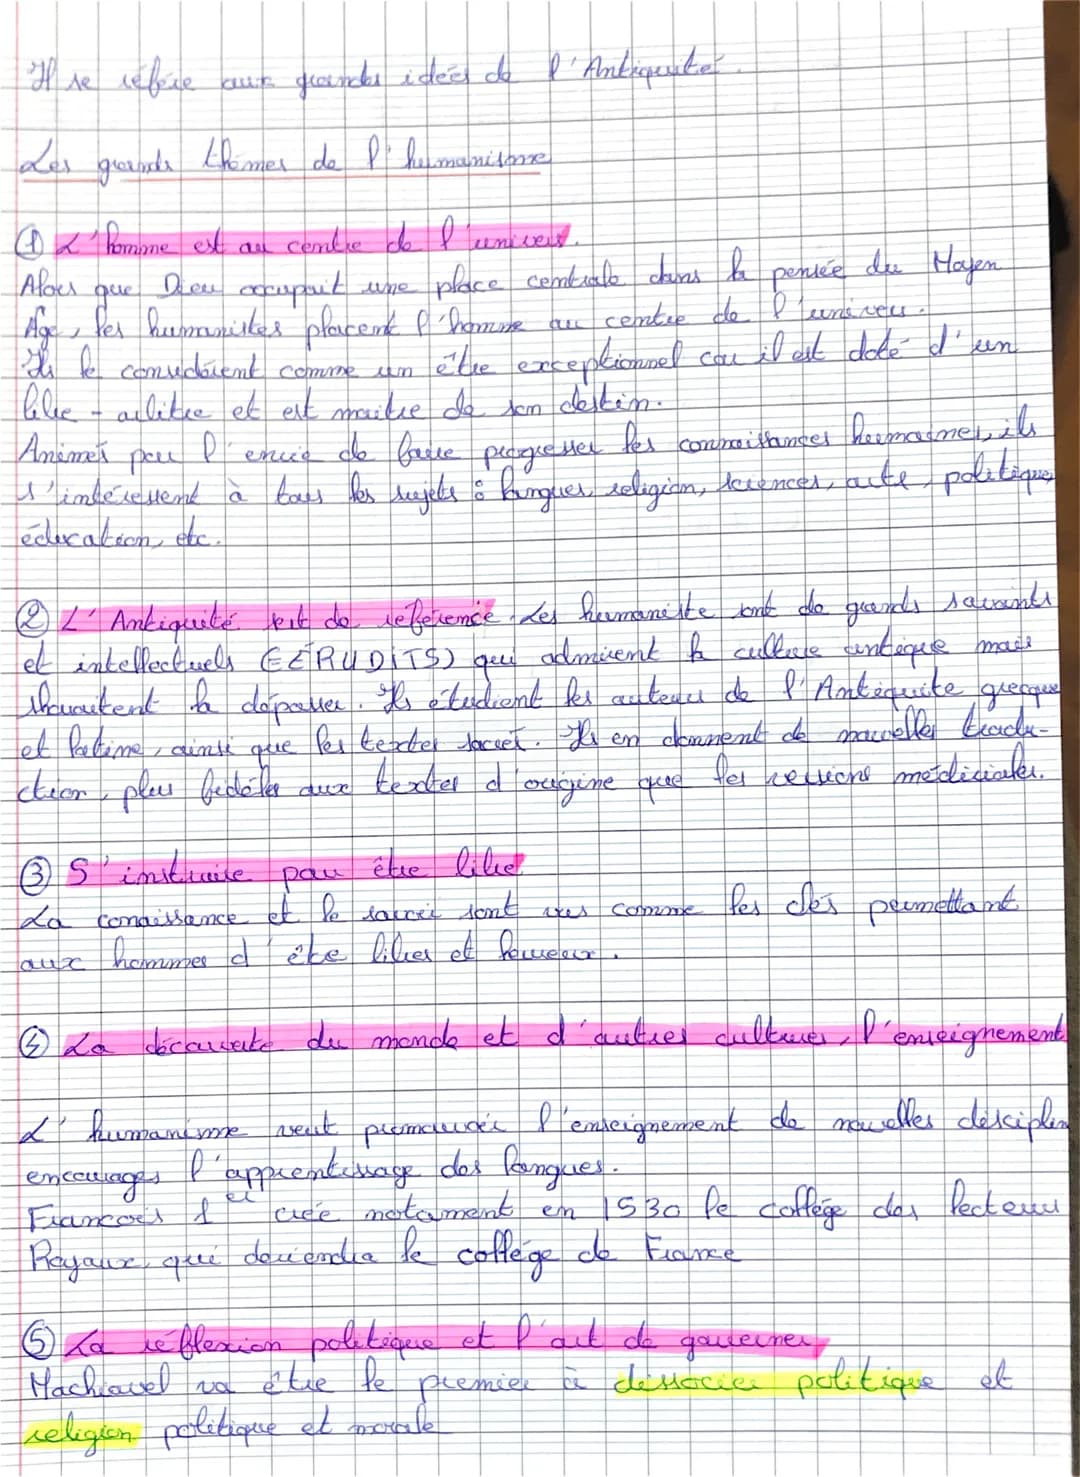 Il se réfère aux grandes idées de l'Antiquité.
Les grands thèmes de l'humanisme
① L'homme est au centre de l'univers.
Alors que Dieu occupait une place centrale dans la pensée du Moyen
Age, les humanistes placent l'homme au centre de l'univers.
Ils le considèrent comme un être exceptionnel car il est doté d'un
libre-arbitre et est maitre de son destin.
Animés par l'envie de faire progresser les connaissances humaines, ils
s'intéressent à tous les sujets : langues, religion, sciences, arts, politique,
éducation, etc.
② L'Antiquité sert de référence. Les humaniste sont de grands savants
et intellectuels (ÉRUDITS) qui admirent la culture antique mais
souhaitent la dépasser. Ils étudient les auteurs de l'Antiquité grecque
et latine, ainsi que les textes sacrés. Ils en donnent de nouvelles traduc-
ction, plus fidèles aux textes d'origine que les versions médiévales.
③ S'instruire pour être libre
La conaissance et le savoir sont vus comme les clés permettant
aux hommes d'être libres et heureux.
④ La découverte du monde et d'autres cultures, l'enseignement
L'humanisme veut promouvoir l'enseignement de nouvelles disciplin
encourages l'apprentissage des langues.
Francois 1er crée notament en 1530 le collège des lecteurs
Royaux, qui deviendra le collège de France
⑤ La réflexion politique et l'art de gouverner,
Machiavel va être le premier à dissocier politique et
religion politique et morale